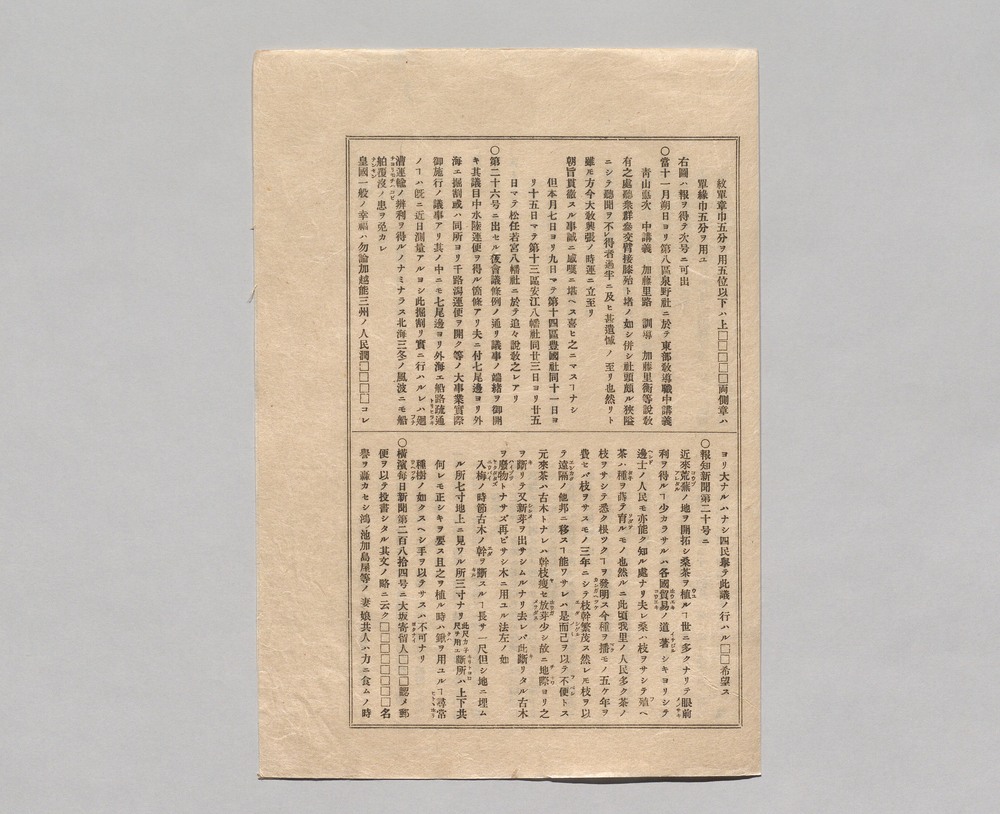 紋單章巾五分ヲ用五位以下ハ上□□□□両側章ハ
單緣巾五分ヲ用ユ
右圖ハ報ヲ得テ次号ニ可出
〇當十一月朔日ヨリ第八區泉野社ニ於テ東部敎導職中講義
青山嘉次 中講義 加藤里路 訓導 加藤里衡等說敎
有之處聽衆群參交臂接膝殆ト堵ノ如シ併シ社頭頗ル狹隘
ニシテ聽聞ヲ不レ得者過半ニ及ヒ甚遺憾ノ至リ也然リト
雖モ方今大敎興張ノ時運ニ立至リ
朝旨貫徹スル事誠ニ感嘆ニ堪ヘス喜ヒ之ニマスヿナシ
但本月七日ヨリ九日マテ第十四區豊國社同十一日ヨ
リ十五日マテ第十三區安江八幡社同廿三日ヨリ廿五
日マテ松任若宮八幡社ニ於テ追々說敎之レアリ
〇第二十六号ニ出セル仮會議條例ノ通リ議事ノ端緖ヲ御開
キ其議目中水陸運便ヲ得ル箇條アリ夫ニ付七尾邊ヨリ外
海エ掘割或ハ同所ヨリ千路潟運便ヲ開ク等ノ大事業實際
御施行ノ議事アリ其ノ中ニモ七尾邊ヨリ外海エ船路疏通
ノヿハ旣ニ近日測量アルヨシ此掘割リ實ニ行ハルレハ廻
漕運輸ノ辨利ヲ得ルノナミナラス北海三冬ノ風波ニモ船
舶覆沒ノ患ヲ免カレ
皇國一般ノ幸福ハ勿論加越能三州ノ人民潤□□□□コレ
ヨリ大ナルハナシ四民擧テ此議ノ行ハル□□希望ス
〇報知新聞第二十号ニ
近來荒蕪ノ地ヲ開拓シ桑茶ヲ植ルヿ世ニ多クナリテ眼前
利ヲ得ルヿ少カラサルハ各國貿易ノ道著シキヨリシテ
邊土ノ人民モ亦能ク知ル處ナリ夫レ桑ハ枝ヲサシテ殖ヘ
茶ハ種ヲ蒔テ育ルモノ也然ルニ此頃我里ノ人民多ク茶ノ
枝ヲサシテ悉ク根ツクヿヲ發明ス今種ヲ播モノ五ケ年ヲ
費セバ枝ヲサスモノ三年ニシテ枝幹繁茂ス然レモ枝ヲ以
テ遠隔ノ他邦ニ移スヿ能ワサレハ是而己ヲ以テ不便トス
元來茶ハ古木トナレハ幹枝瘦セ放芽少シ故ニ地際ヨリ之
ヲ斷リテ又新芽ヲ出サシムルナリ去レバ此斷リタル古木
ヲ廢物トナサズ再ビサシ木ニ用ユル法左ノ如
入梅ノ時節古木ノ幹ヲ斷スルヿ長サ一尺但シ地ニ埋ム
ル所七寸地上ニ見ワル所三寸ナリ此尺カチ尺ヲ用ユ斷所ハ上下共
何レモ正シキヲ要ス且之ヲ植ル時ハ鍬ヲ用ユルヿ尋常
種樹ノ如クスヘシ手ヲ以テサスハ不可ナリ
〇橫濱每日新聞第二百八拾四号ニ大坂寄留人□□認メ郵
便ヲ以テ投書シタル其文ノ略ニ云ク□□□□□□□名
譽ヲ轟カセシ鴻ノ池加島屋等ノ妻娘共人ハ力ニ食ムノ時